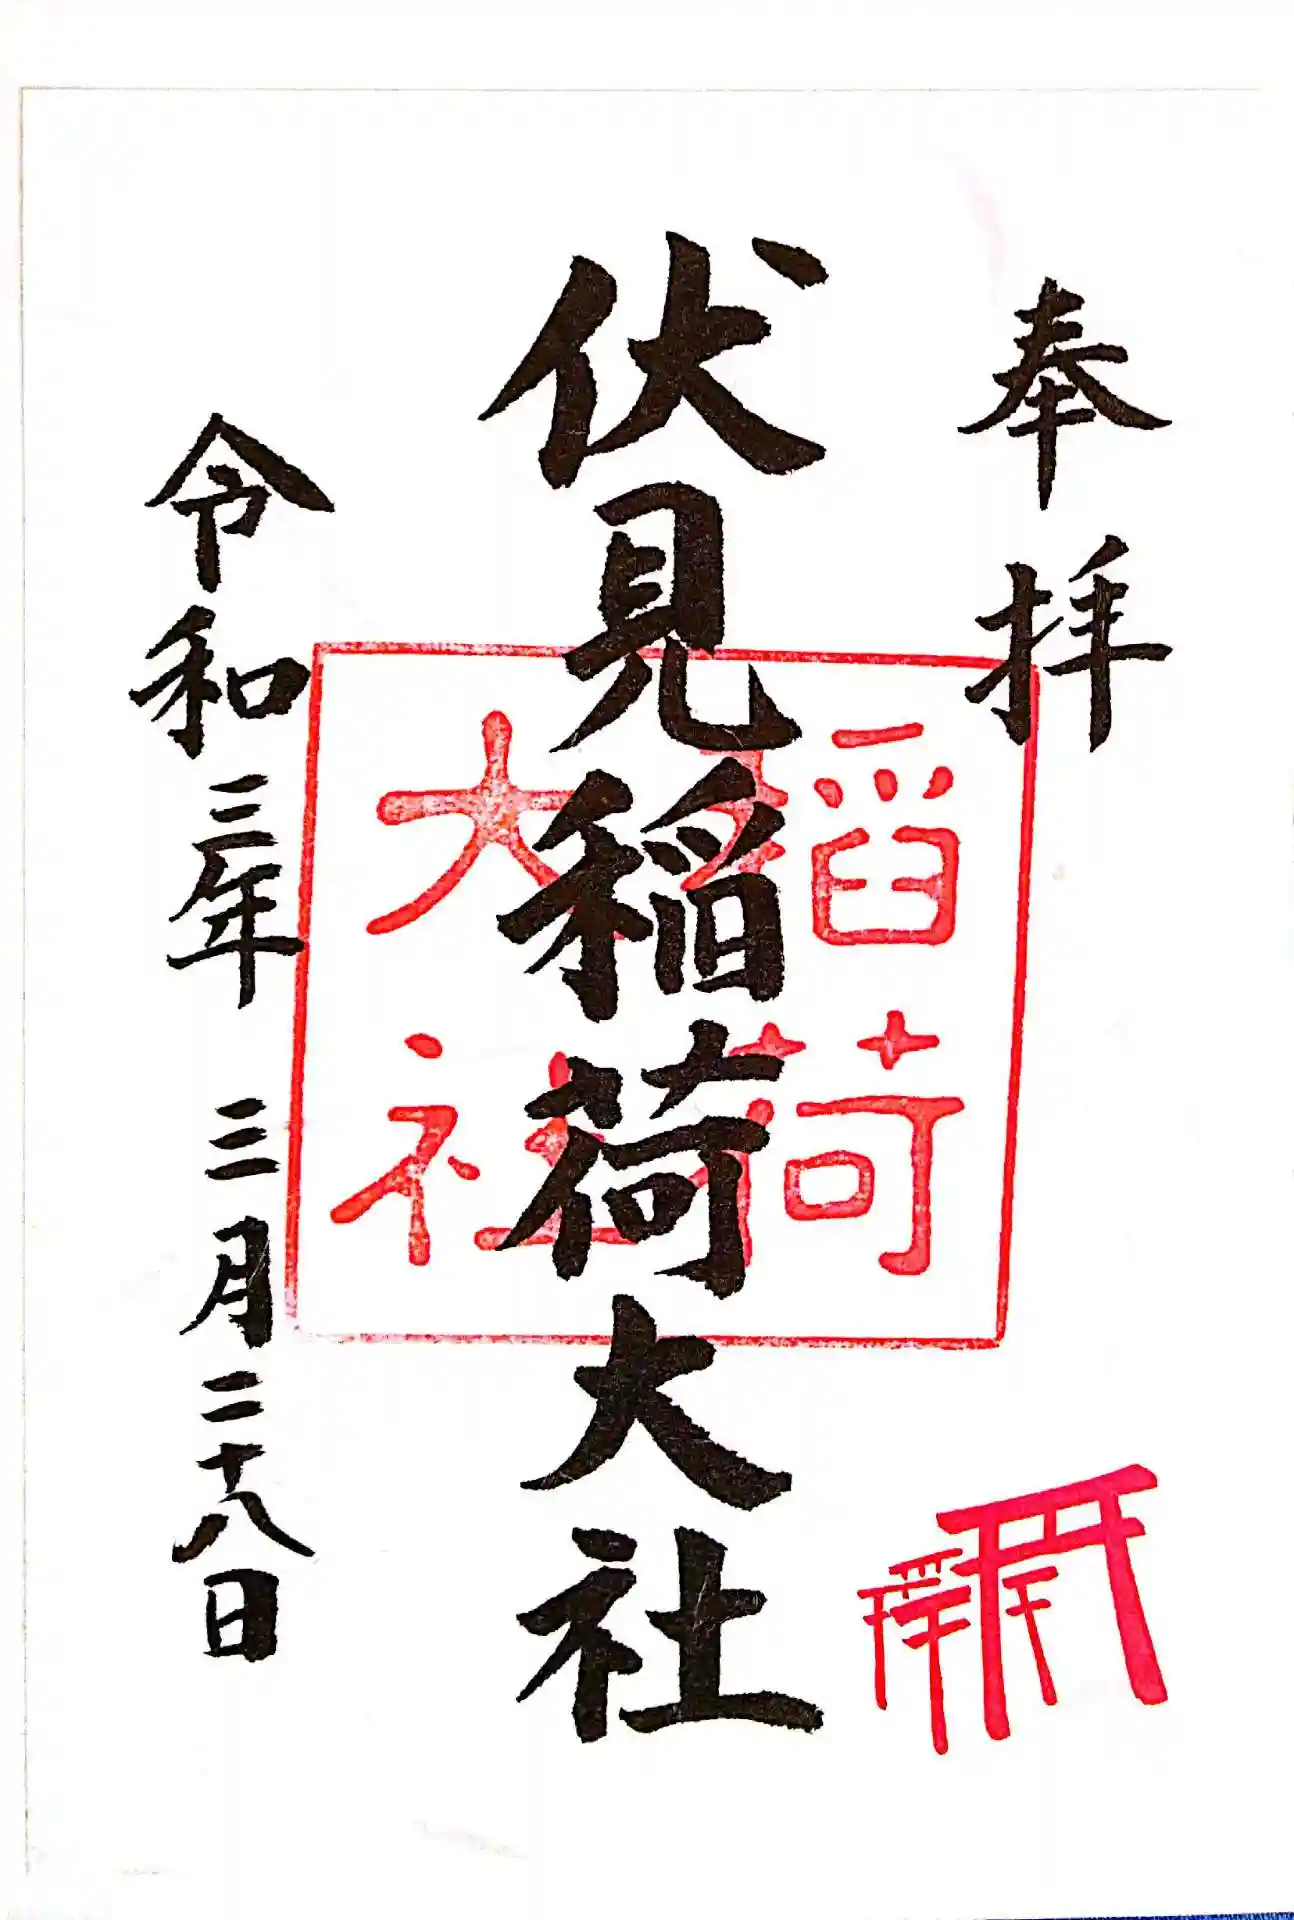 奉拝
伏見稲荷大社
稲荷
大社
令和三年 三月二十八日